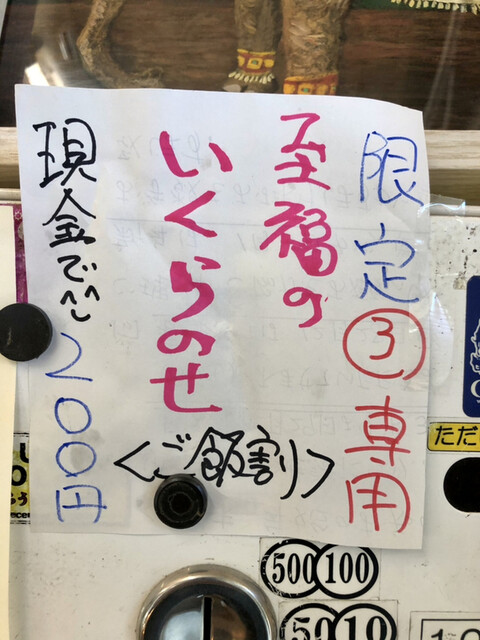 限定③専用
至福の
いくらのせ
<ご飯割>
現金で^^
200円
ただ
500 100
50 10